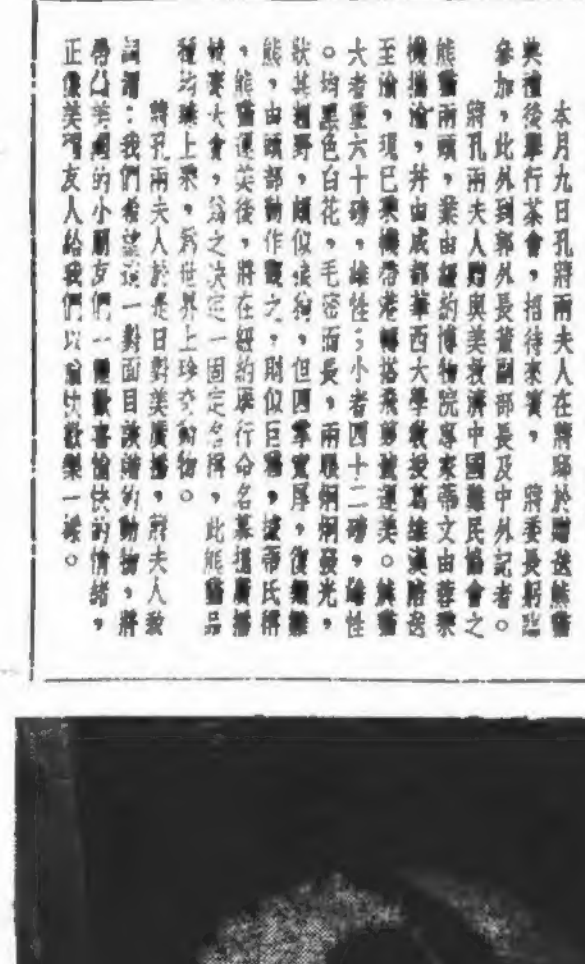 本月九日孔蔣兩夫人在蔣邸於贈送熊貓
典禮後舉行茶會，招待來賓，蔣委員長躬臨
參加，此外到郭外長董副部長及中外記者。
蔣孔兩夫人贈與美救濟中國難民協會之
熊貓兩頭，業由紐約博物院專家蒂文由蓉乘
機攜渝，幷由成都華西大學教授葛維漢陪送
至渝，現已乘機帶港轉搭飛剪號運美。熊貓
大者重六十磅，雄性；小者四十二磅，雌性
。均黑色白花，毛密而長，兩眼烱烱發光，
狀其粗野，頗似狼狗，但四掌寬厚，復類雄
熊，由頭部動作觀之，則似巨貓，據蒂氏稱
，熊貓運美後，將在紐約舉行命名募捐廣播
競賽大會，爲之決定一固定名稱，此熊貓品
種均珠上乘，爲世界上珍奇動物。
蔣孔兩夫人於是日對美廣播，蔣夫人致
詞謂：我們希望這一對面目詼諧的動物，將
予美國的小朋友們一種歡喜愉快的情緒，
正像美國友人給我們以愉快歡樂一樣。